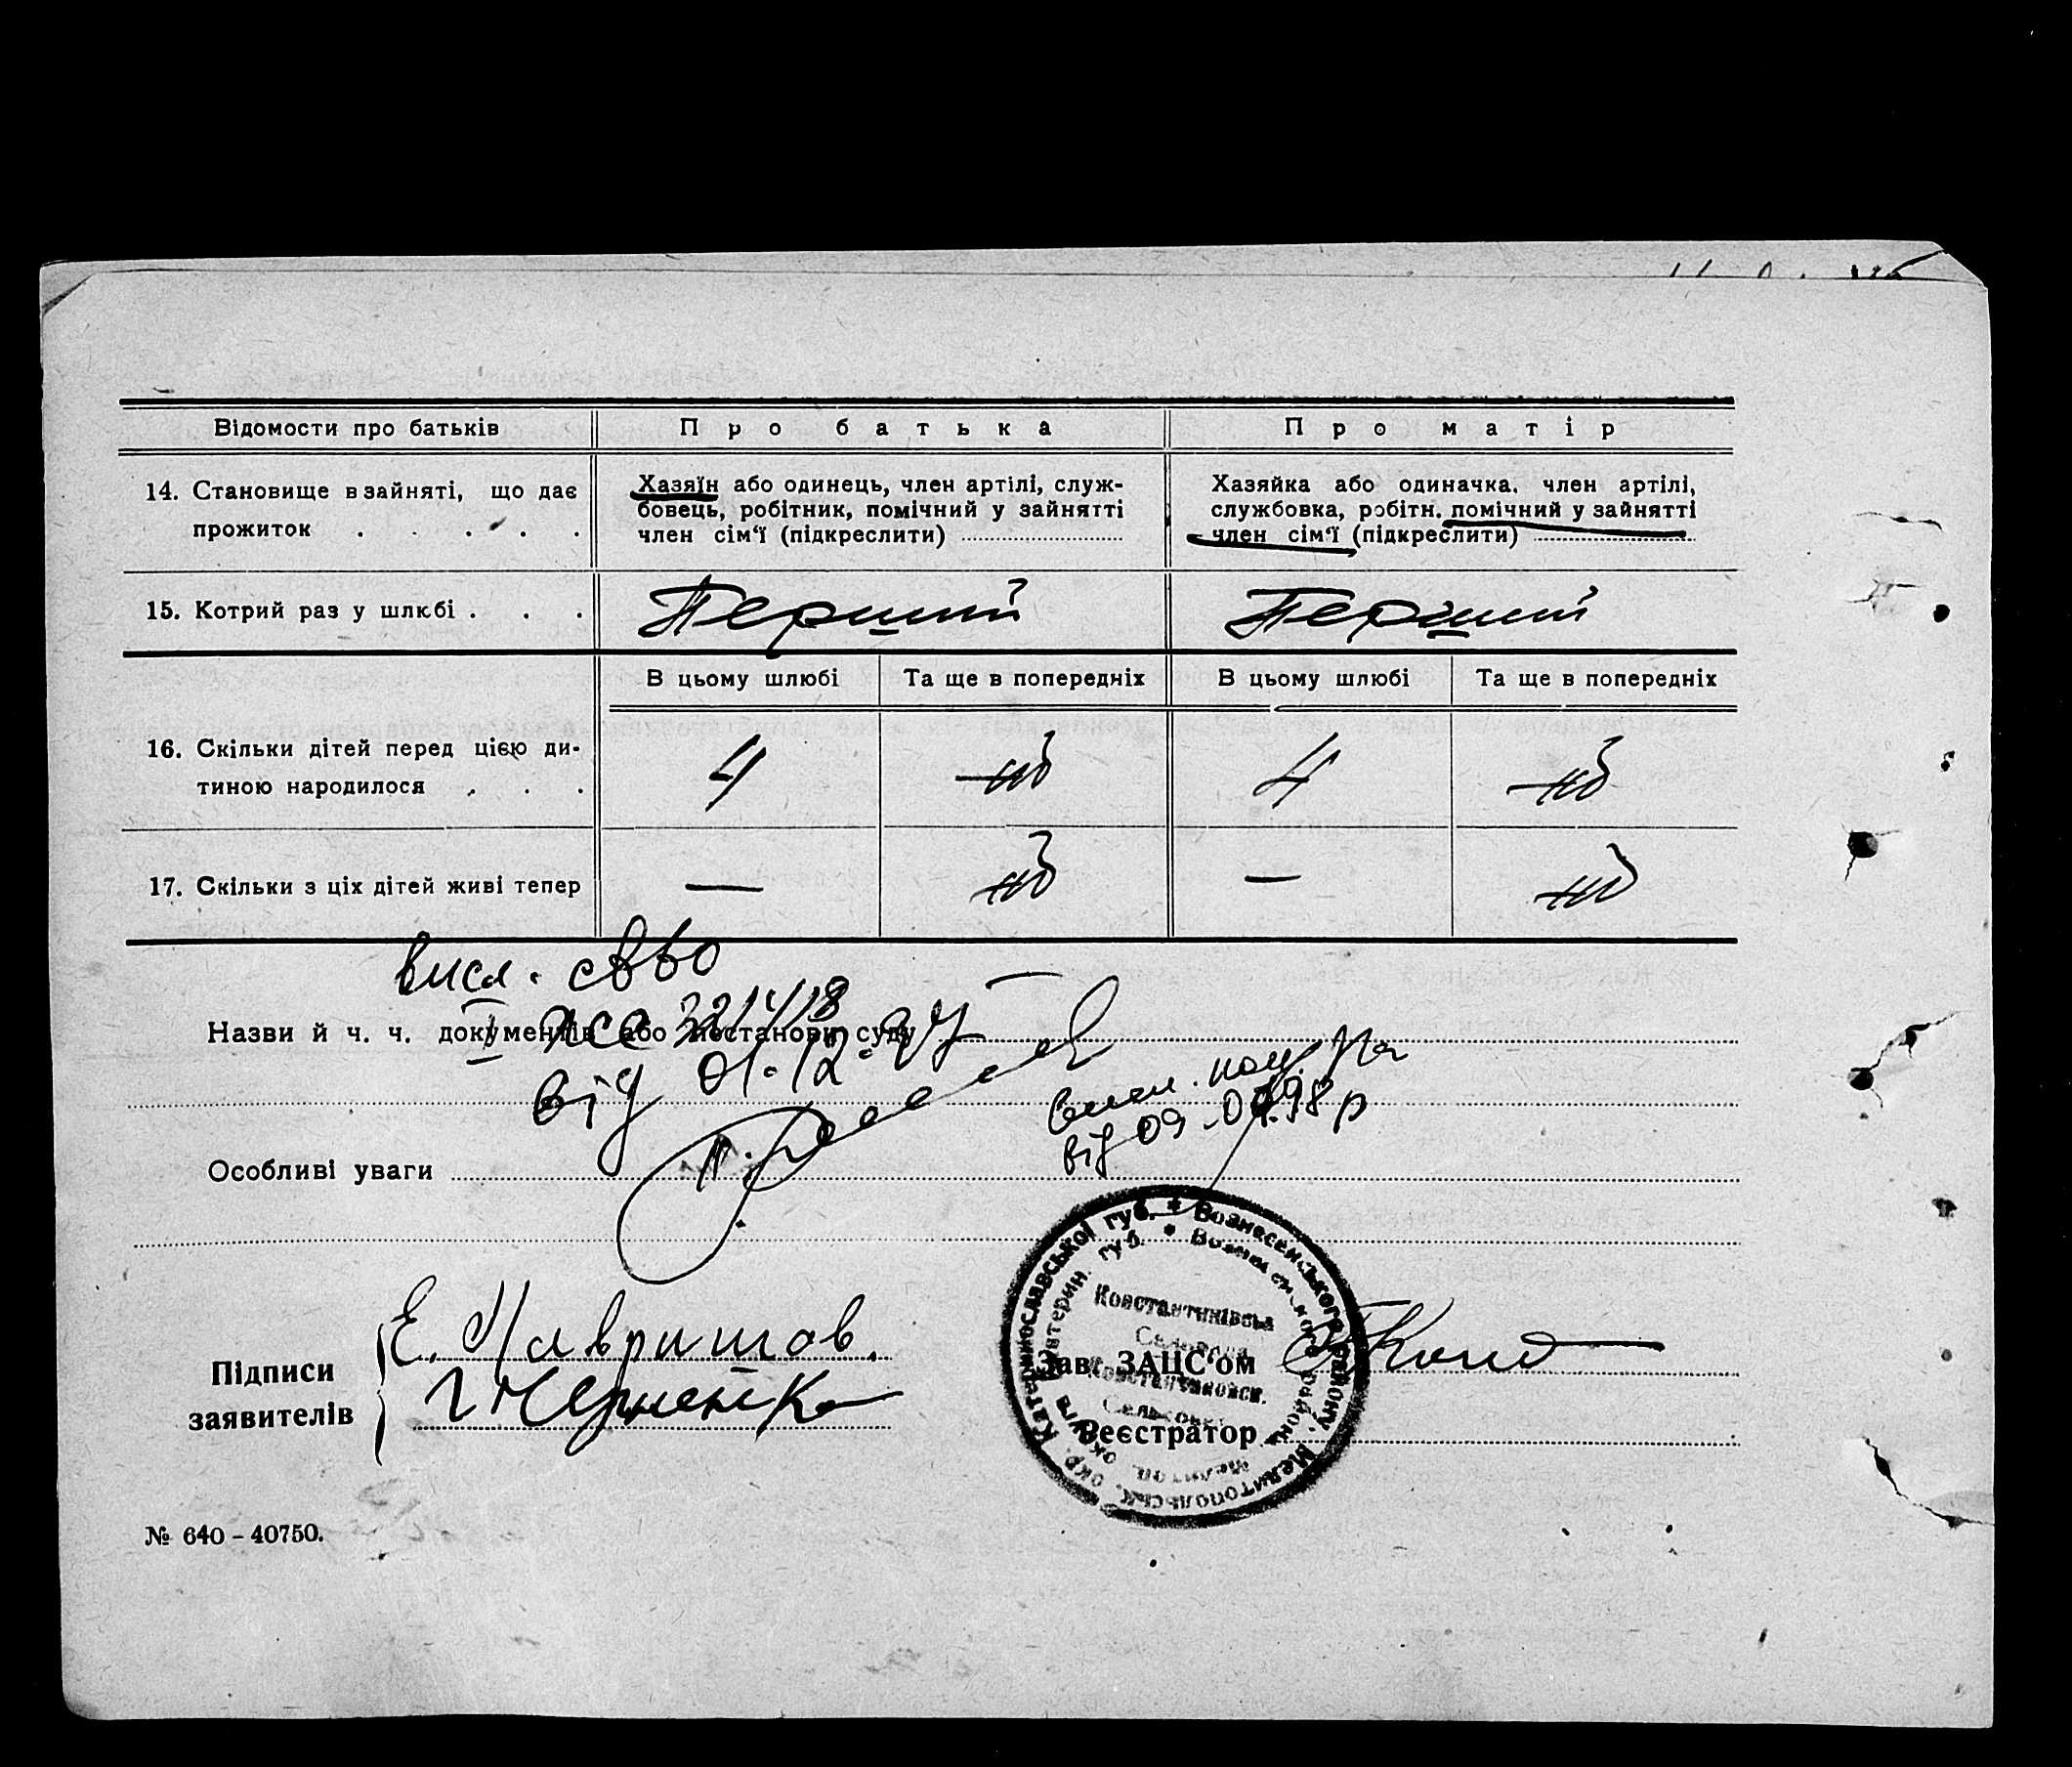 Відомости про батьків
Про батька
Про матір
14. Становище в зайняті, що дає
прожиток . . . . .
Хазяїн або одинець, член артілі, служ-
бовець, робітник, помічний у зайнятті
член сім'ї (підкреслити)
Хазяйка або одиначка, член артілі,
службовка, робітн. помічний у зайнятті
член сім'ї (підкреслити)
15. Котрий раз у шлюбі . . .
Перший
Перший
В цьому шлюбі
Та ще в попередніх
В цьому шлюбі
Та ще в попередніх
16. Скільки дітей перед цією ди-
тиною народилося . . .
4
4
17. Скільки з ціх дітей живі тепер
—
—
висл. св-во
Назви й ч. ч. документів або постанови суду
I 321418
від 01.12.97
від 09.07.98 р
Особливі уваги
Катеринославської губ. * Вознесенського району, Мелитопольськ. окр.
Катерин. губ. *
Константинівська
Константиновск.
Сельсовет
Підписи
заявителів
Е. Мавришов.
Г Черненко
Зав. ЗАЦС'ом
Реєстратор
№ 640 – 40750.